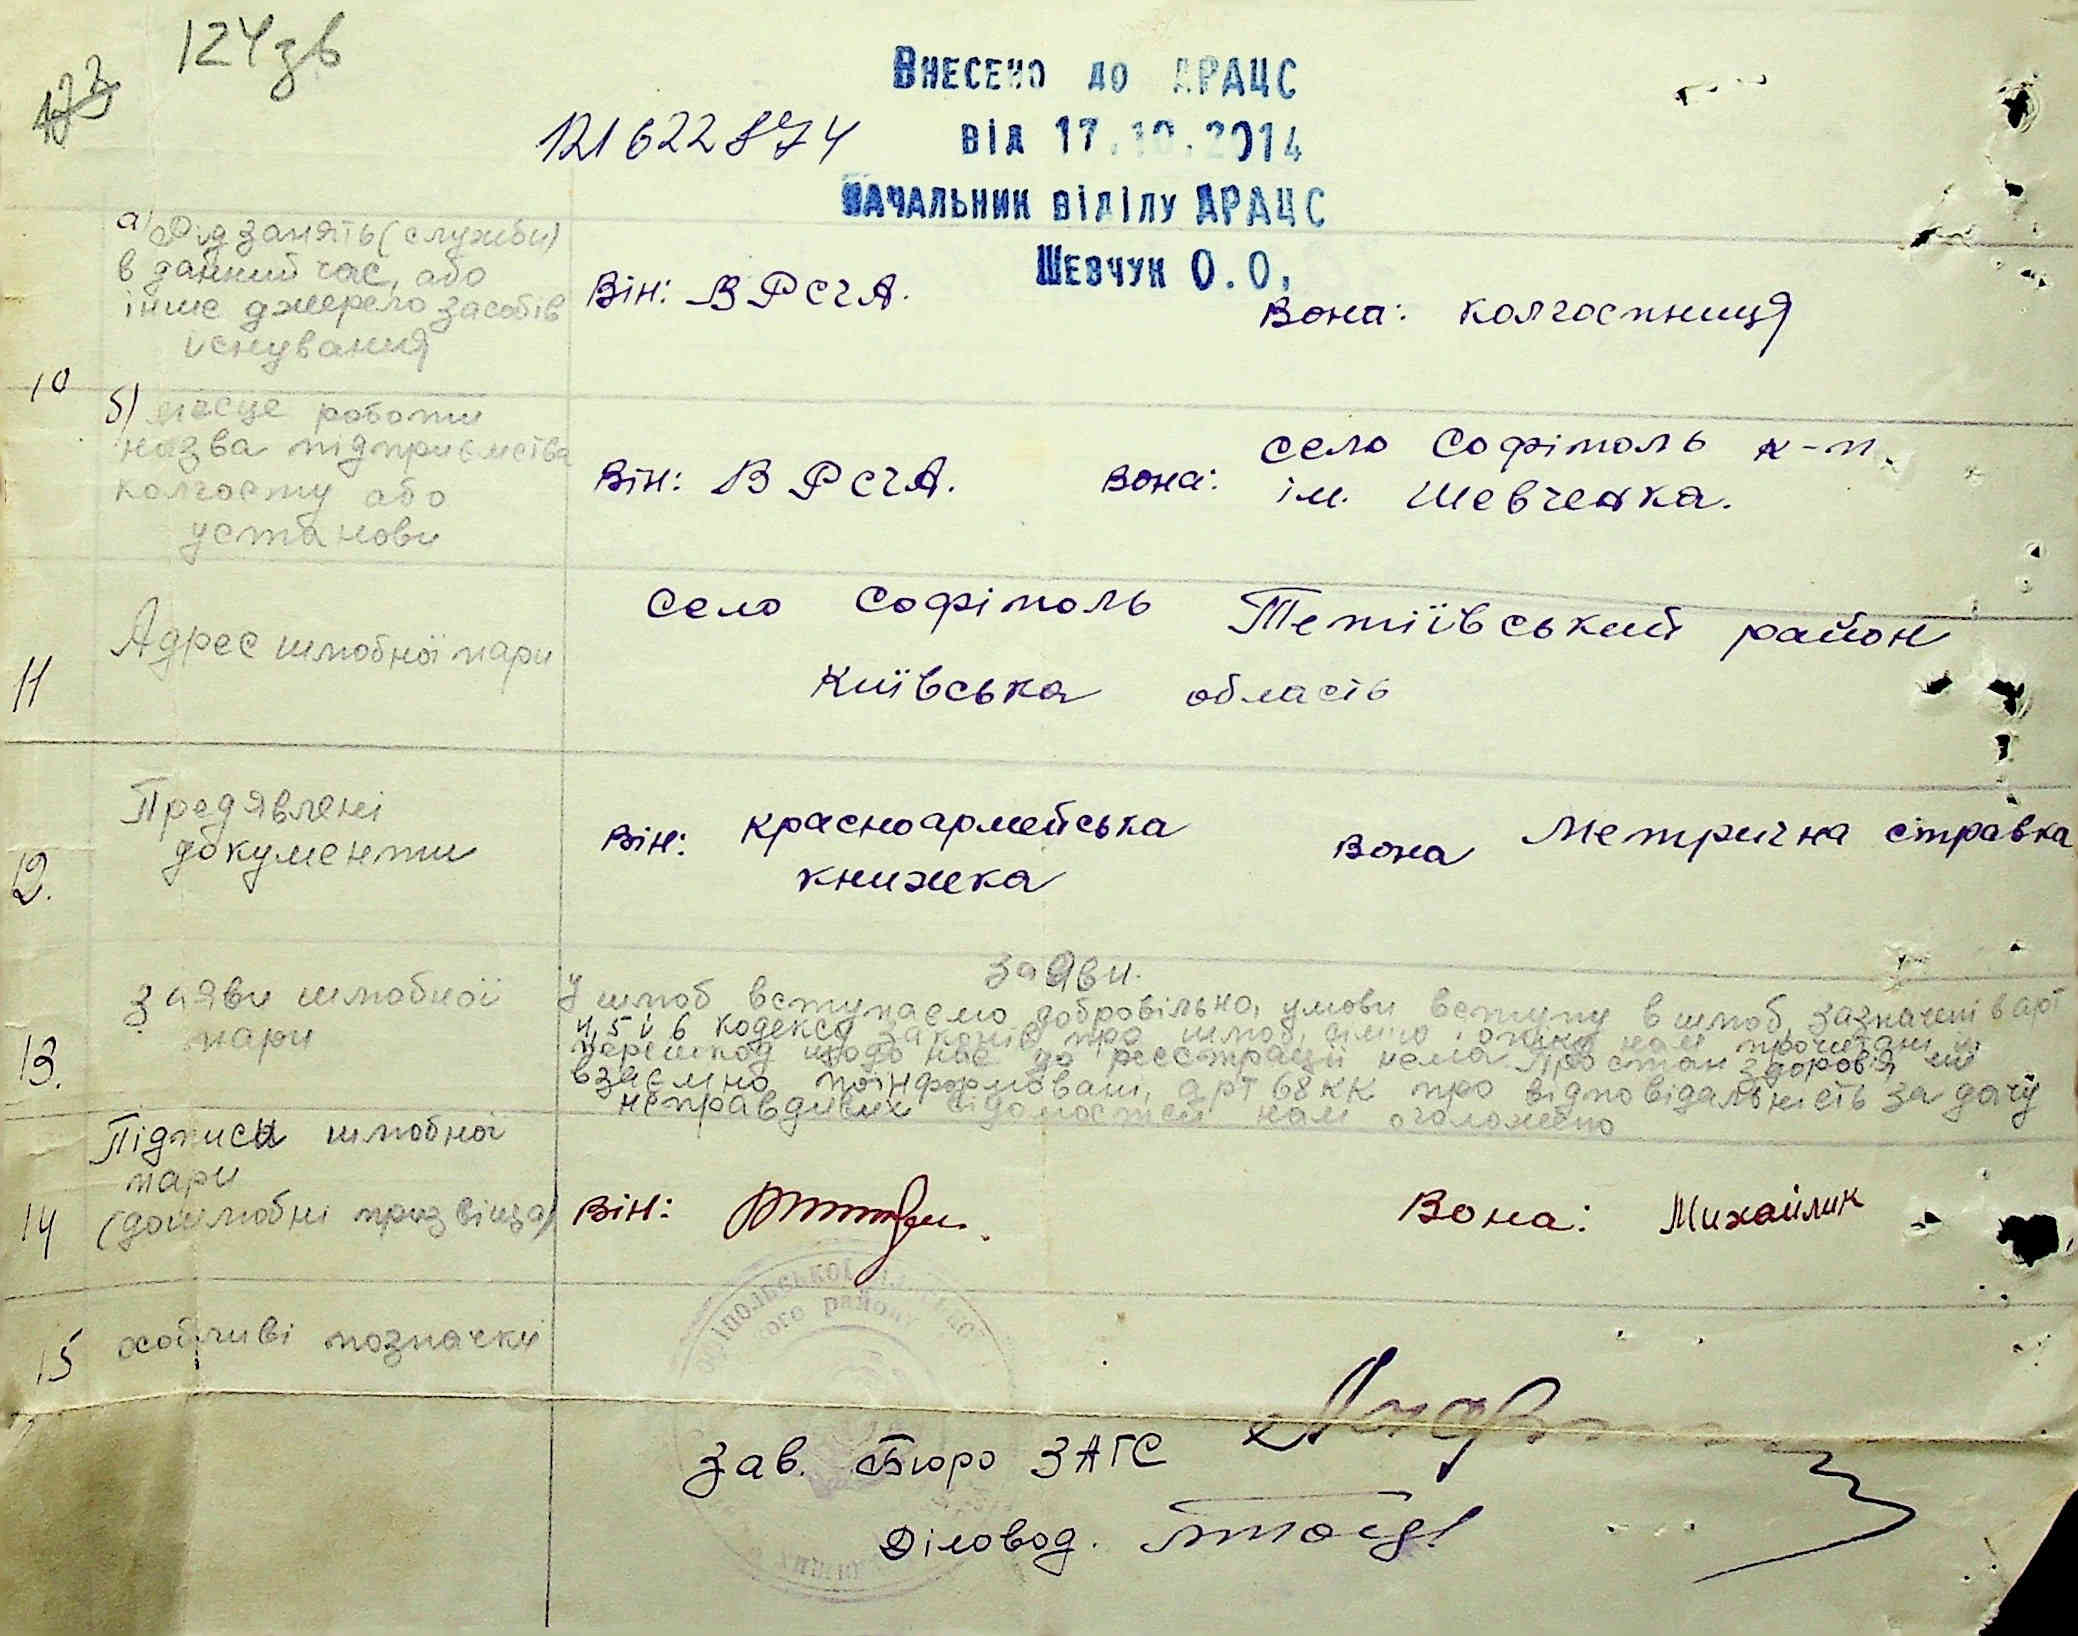 124зв
121622874
Внесено до ДРАЦС
від 17.10.2014
Начальник відділу ДРАЦС
Шевчук О.О.
10
а) Рід занять (служби)
в даний час, або
інше джерело засобів
існування
Він: В РСЧА.
Вона: колгоспниця
б) місце роботи
назва підприємства
колгоспу або
установи
Він: В РСЧА.
Вона: село Софіполь к-п
ім. Шевченка.
11
Адрес шлюбної пари
село Софіполь Тетіївський район
Київська область
12.
Предявлені
документи
Він: красноармейська
книжка
Вона Метрична справка
13.
Заяви шлюбної
пари
Заяви.
У шлюб вступаємо добровільно, умови вступу в шлюб, зазначені в арт
4, 5 і 6 кодексу законів про шлюб, сімю і опіку нам прочитані й
перешкод щодо нас до реєстрації нема. Про стан здоровія ми
взаємно поінформовані, арт 68 КК про відповідальність за дачу
неправдивих відомостей нам оголошено
14
Підписи шлюбної
пари
(дошлюбні призвіща)
Він:
Вона: Михайлик
15
особливі позначки
району
Зав. Бюро ЗАГС
Діловод.